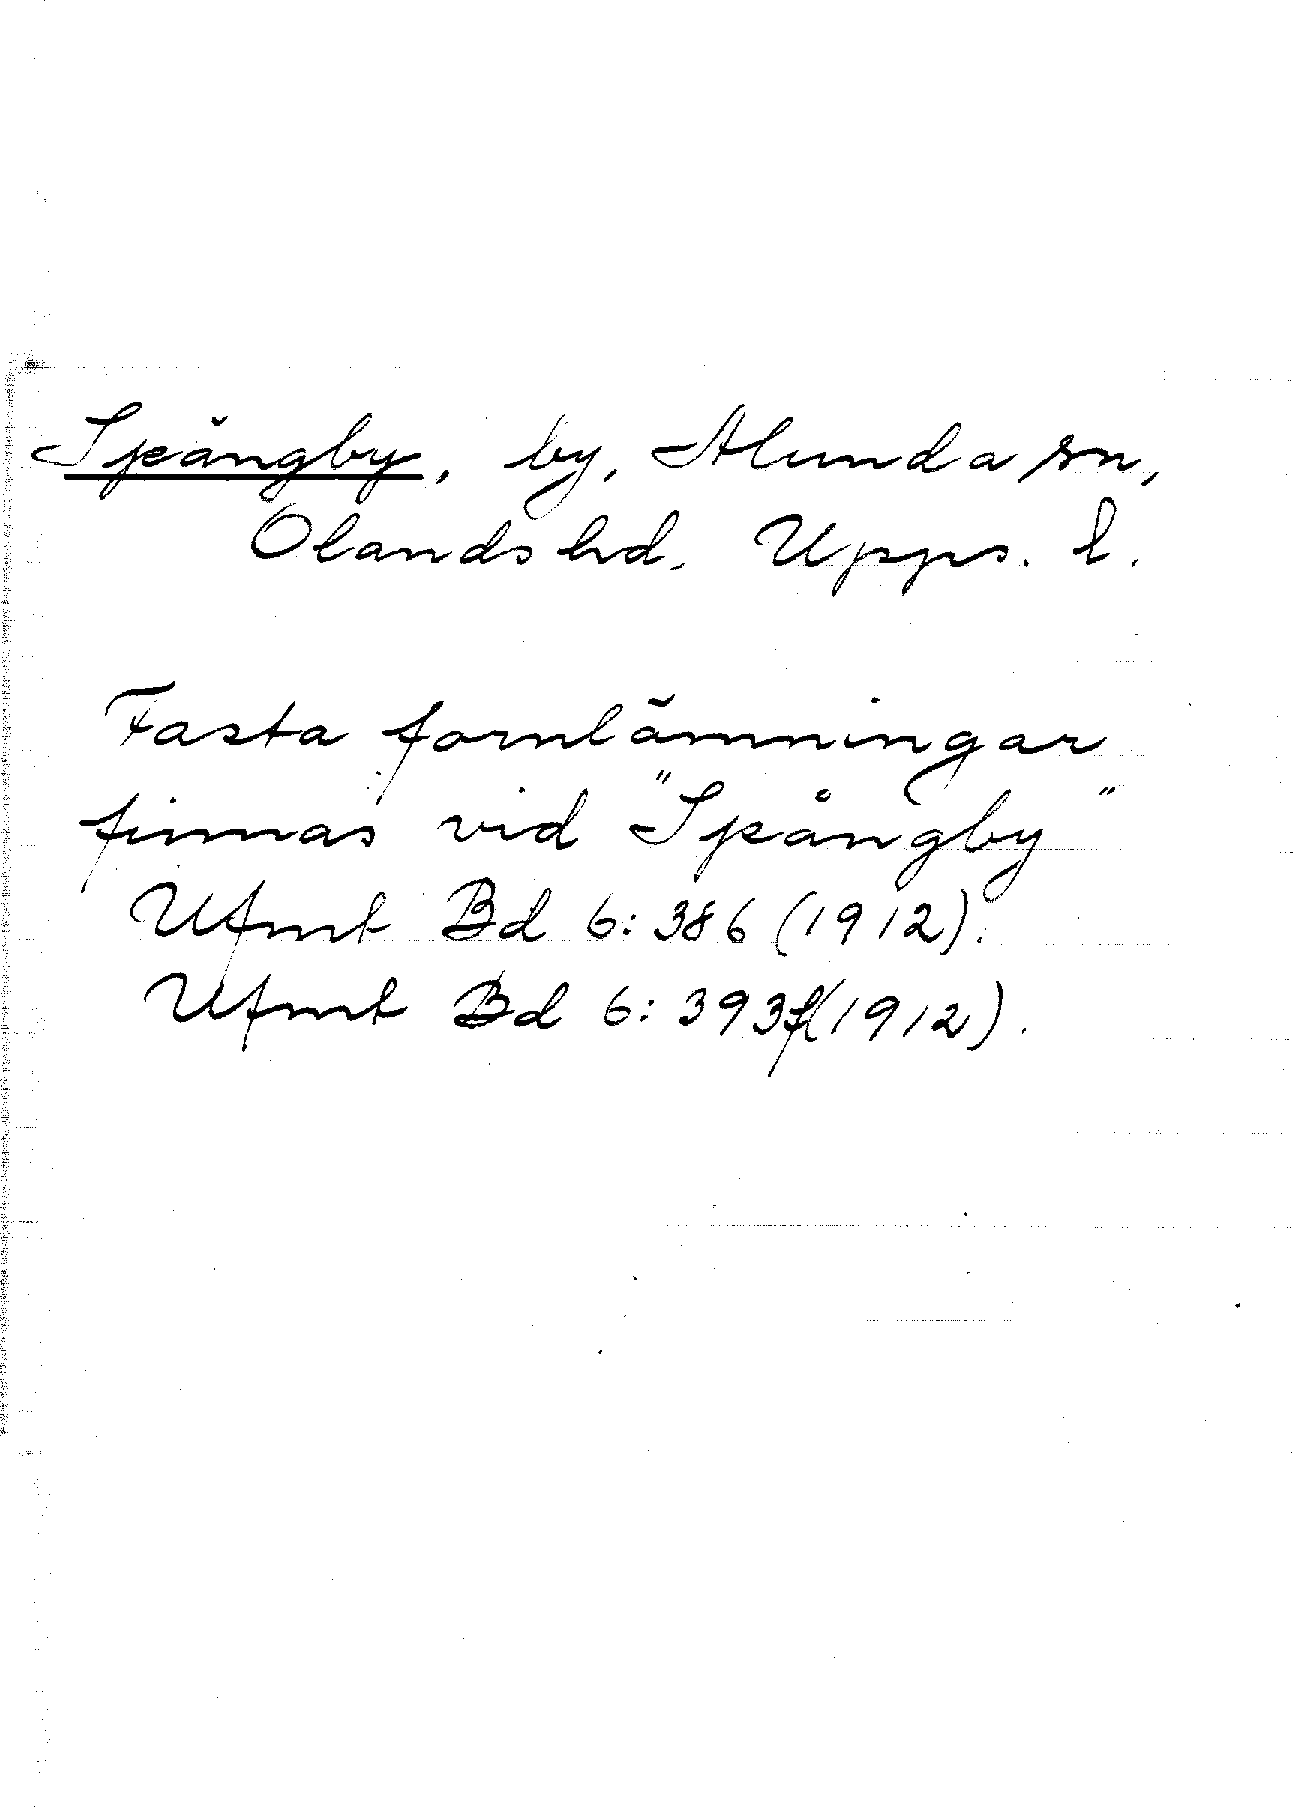 Spångby, by, Alunda sn,
Olands hd, Upps. l.
Fasta fornlämningar
finnas vid "Spångby"
Ufmt Bd 6: 386 (1912).
Ufmt Bd 6: 393f (1912).